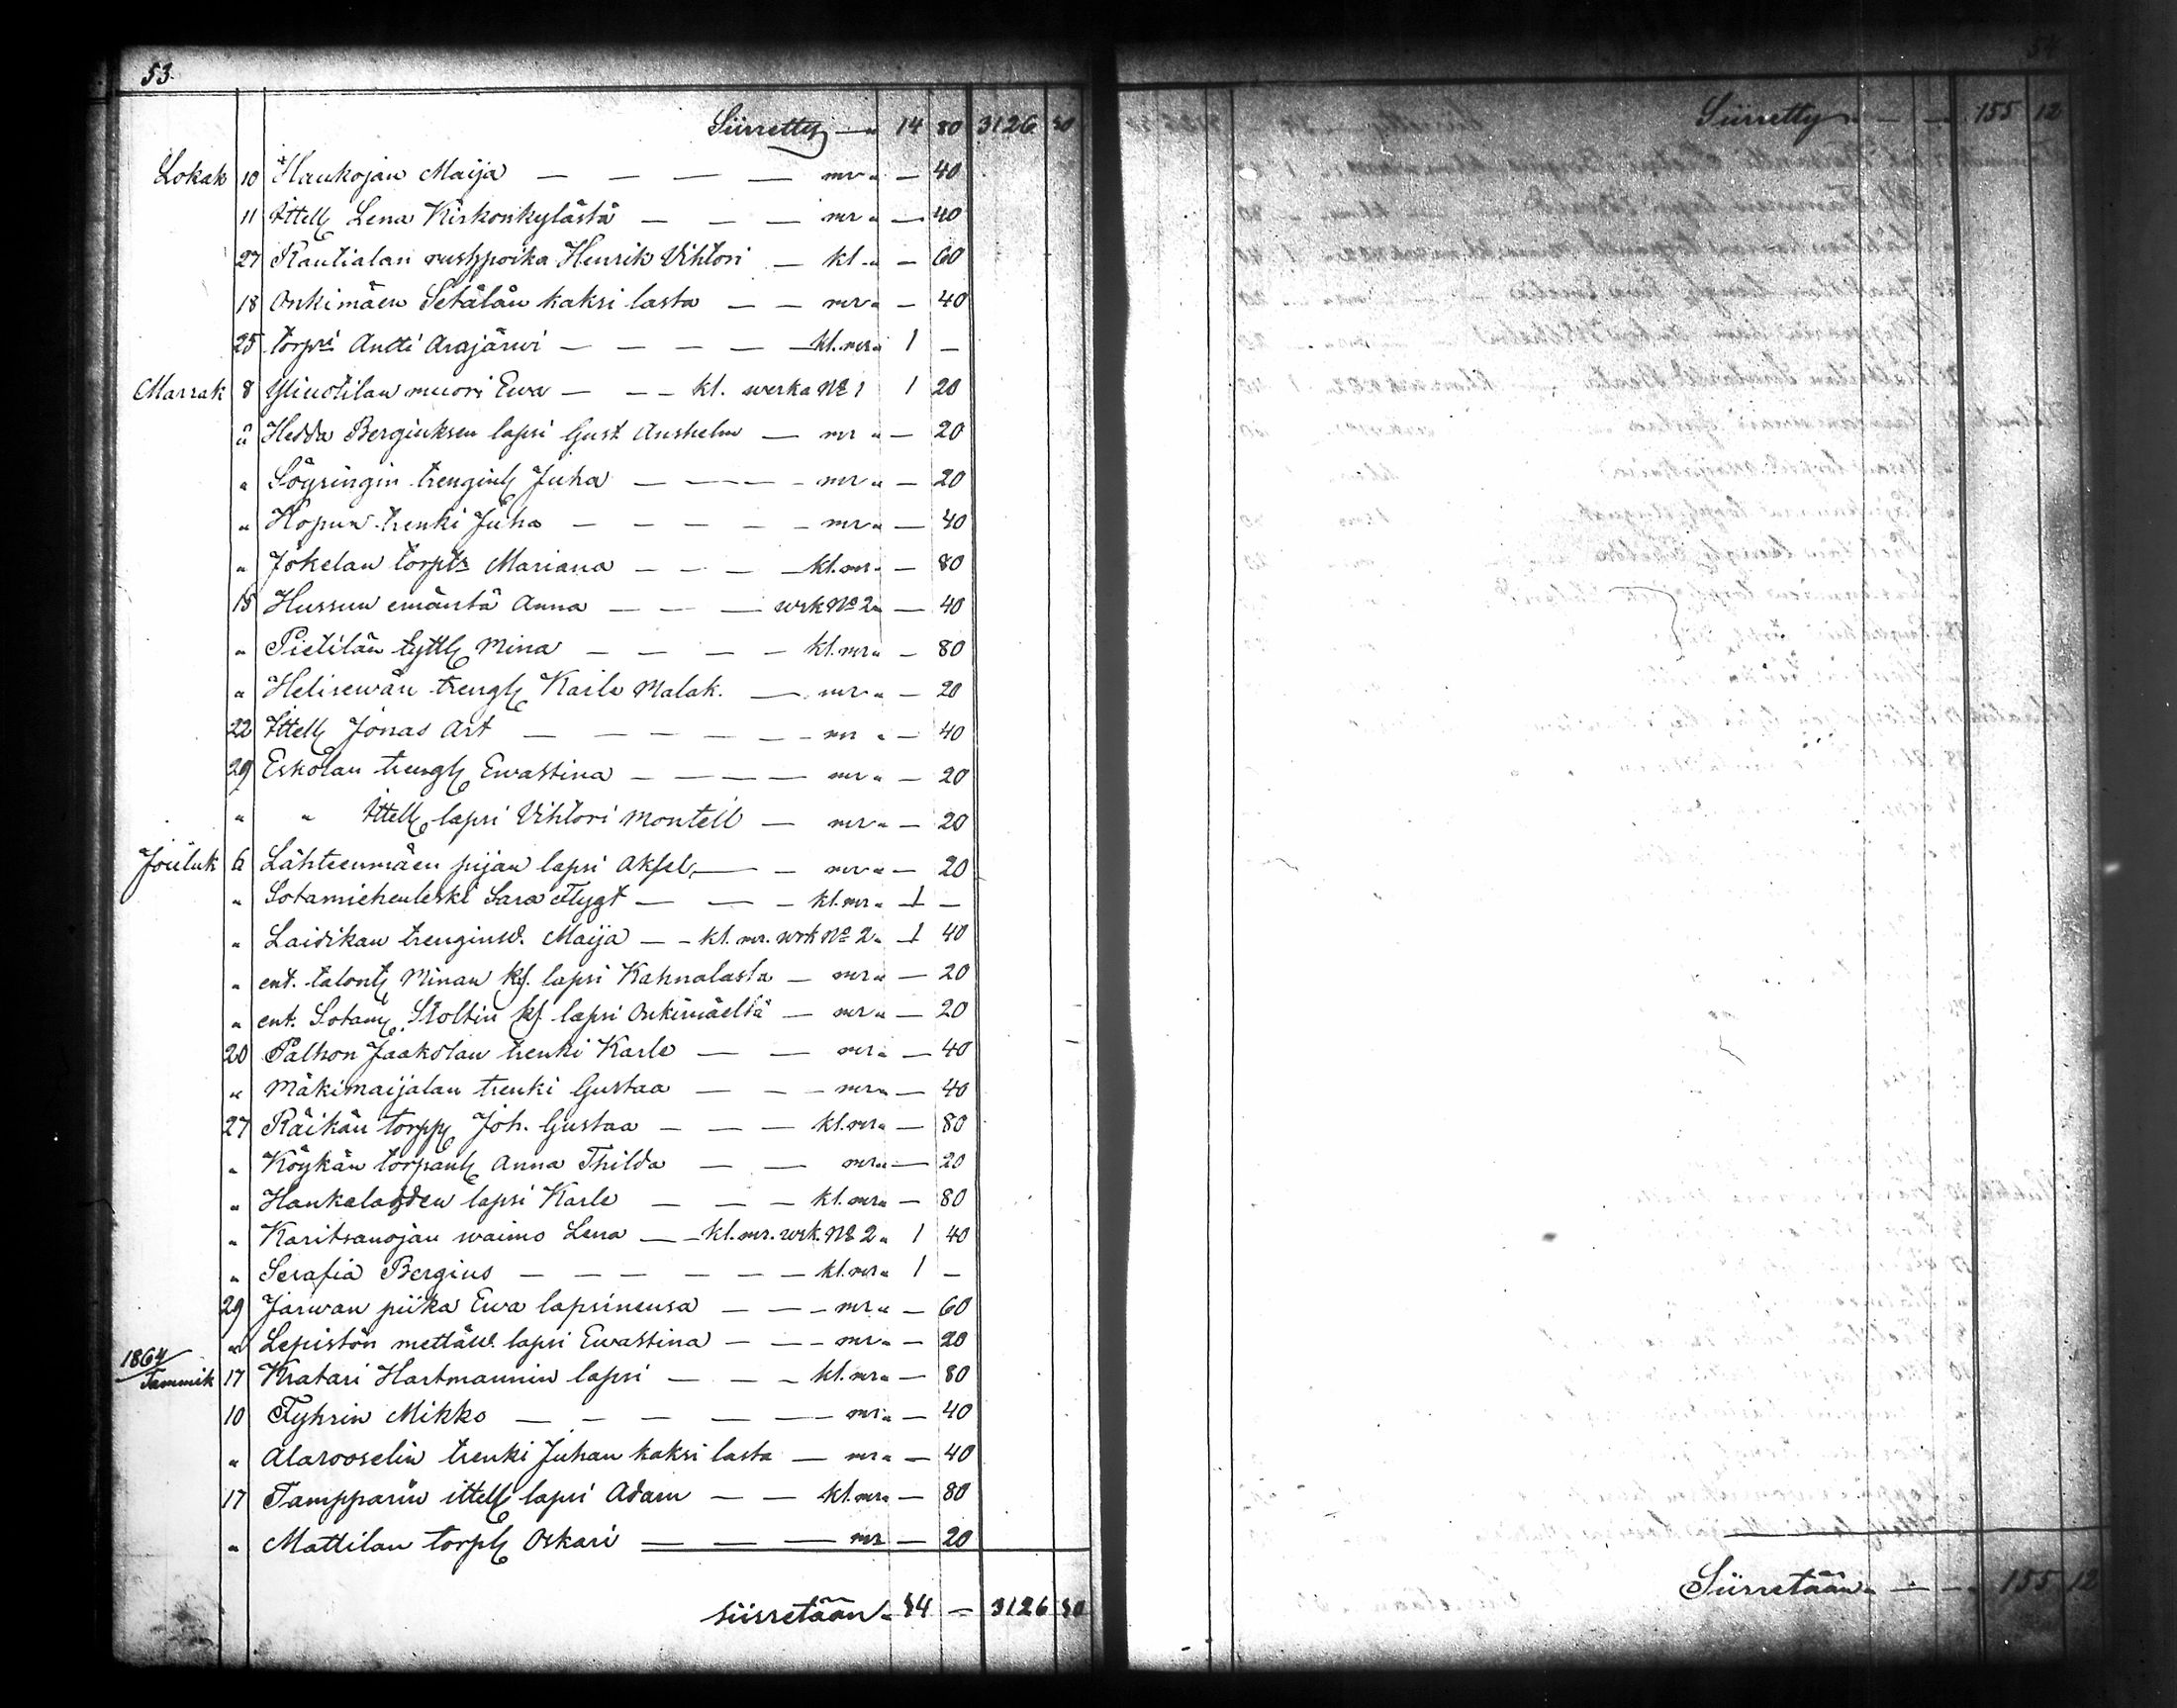 53.
Siirretty — „ 14 80 3126 80
Lokak 10 Haukojan Maija — — — — mr „ — 40
11 Ittell Lena Kirkonkylästä — — — mr „ — 40
27 Rautialan rusthpoika Henrik Vihtori — kl „ — 60
18 Onkimäen Setälän kaksi lasta — — mr „ — 40
25 torpri Antti Arajärwi — — — — — kl. mr „ 1 —
Marrak 8 Yliuotilan muori Ewa — — — kl. werka № 1 1 20
„ Hedda Bergiuksen lapsi Gust Anshelm — mr „ — 20
„ Söyringin trengin Juha — — — — mr „ — 20
„ Hopun trenki Juha — — — — — mr „ — 40
„ Jokelan torpts Mariana — — — — kl. mr „ — 80
15 Hussun emäntä Anna — — — wrk № 2 „ — 40
„ Pietilän tyttl Mina — — — — kl. mr „ — 80
„ Helisewän trengl Karle Malak. — mr „ — 20
22 Ittell Jonas Art — — — — — — mr „ — 40
29 Eskolan trengl Ewastina — — — — mr „ — 20
„ „ Ittell lapsi Vihtori Montell — mr „ — 20
Jouluk 6 Lähteenmäen pijan lapsi Aksel — — mr „ — 20
„ Sotamiehenleski Sara Flygt — — — kl. mr „ 1 —
„ Laidikan trenginw. Maija — — kl. mr. wrk № 2 „ 1 40
„ ent. talont Minan kf. lapsi Kahnalasta — mr „ — 20
„ ent. Sotam. Stoltin kf lapsi Onkimäeltä — mr „ — 20
20 Palhon Jaakolan trenki Karle — — mr „ — 40
„ Mäkimaijalan trenki Gustaa — — — mr „ — 40
27 Räikän torpp Joh. Gustaa — — — kl. mr „ — 80
„ Köykän torpanl Anna Thilda — — mr „ — 20
„ Hankalahden lapsi Karle — — — kl. mr „ — 80
„ Karitsanojan waimo Lena — — kl. mr. wrk. № 2 „ 1 40
„ Serafia Bergius — — — — — — kl. mr „ 1 —
29 Jarwan piika Ewa lapsinensa — — — mr „ — 60
„ Lepistön mettäw. lapsi Ewastina — — — mr „ — 20
1864
Tammik 17 Kratari Hartmannin lapsi — — — kl. mr „ — 80
10 Fyhrin Mikko — — — — — — mr „ — 40
„ Alarooselin trenki Juhan kaksi lasta — mr „ — 40
17 Tampparin ittell lapsi Adam — — kl. mr „ — 80
„ Mattilan torpl Oskari — — — mr — 20
siirretään „ 34 — 3126 80
54
Siirretty „ — — „ 155 12
Siirretään „ — — „ 155 12